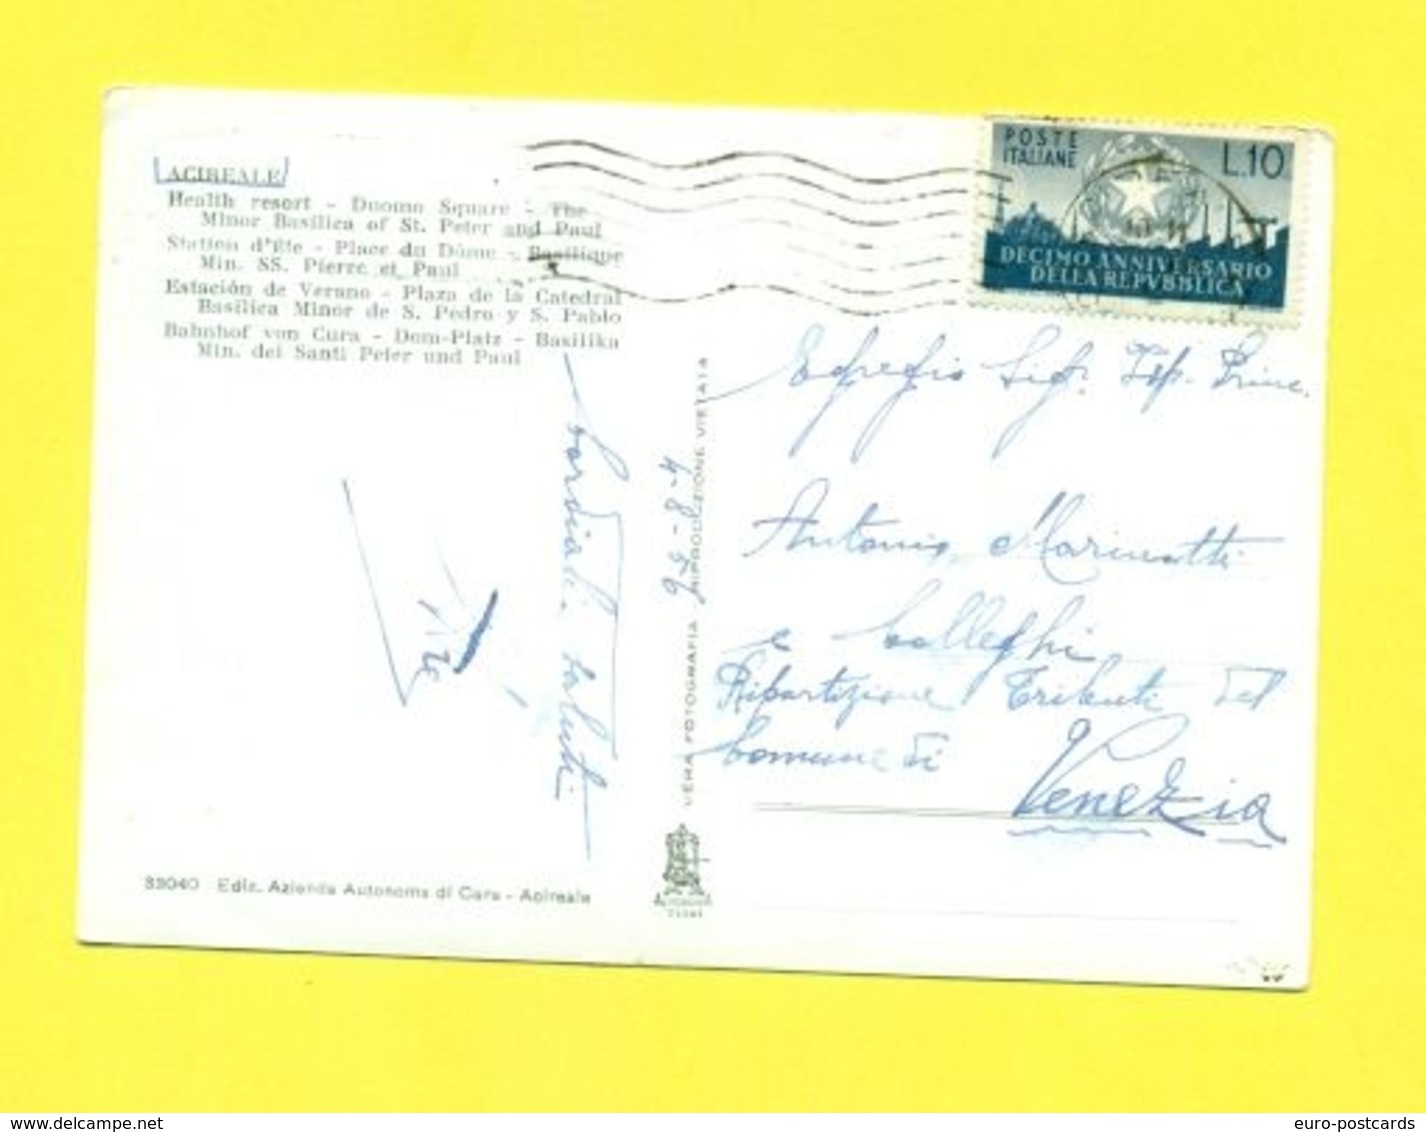 ACIREALE
Health resort - Duomo Square - The
Minor Basilica of St. Peter and Paul
Station d'éte - Place du Dôme - Basilique
Min. SS. Pierre et Paul
Estación de Verano - Plaza de la Catedral
Basilica Minor de S. Pedro y S. Pablo
Bahnhof von Cura - Dom-Platz - Basilika
Min. dei Santi Peter und Paul
Cordiali saluti
33040 Ediz. Azienda Autonoma di Cura - Acireale
VERA FOTOGRAFIA RIPRODUZIONE VIETATA
POSTE
ITALIANE
L.10
DECIMO ANNIVERSARIO
DELLA REPVBBLICA
Egregio Sig. Isp. Princ.
Antonio
e Colleghi
Ripartizione Tributi del
Comune di Venezia
delcampe.net
euro-postcards